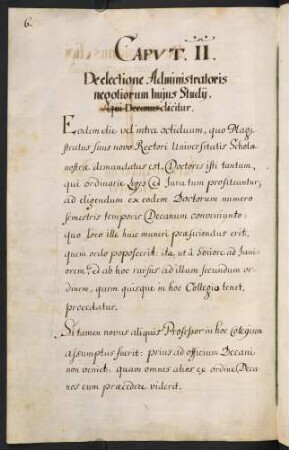 6.
CAPVT. II.
De electione Administratoris
negotiorum hujus Studij.
qui Decanus dicitur.
Eodem die vel intra octiduum, quo Magi-
stratus suus novo Rectori Universitatis Schola
nostræ demandatus est. Doctores isti tantum,
qui ordinarie Leges et Jura tum profiteantur,
ad eligendum ex eodem Doctorum numero
semestris temporis Decanum conveniunto:
quo loco ille huic muneri præficiendus erit,
quem ordo poposcerit: ita, ut à Seniore ad Juni-
orem, et ab hoc rursus ad illum secundum or-
dinem, quem quisque in hoc Collegio tenet,
procedatur.
Si tamen novus aliquis Professor in hoc Colegium
assumptus fuerit: prius ad officium Decani
non veniet: quam omnes alios ex ordine Deca
nos eum præcedere viderit.